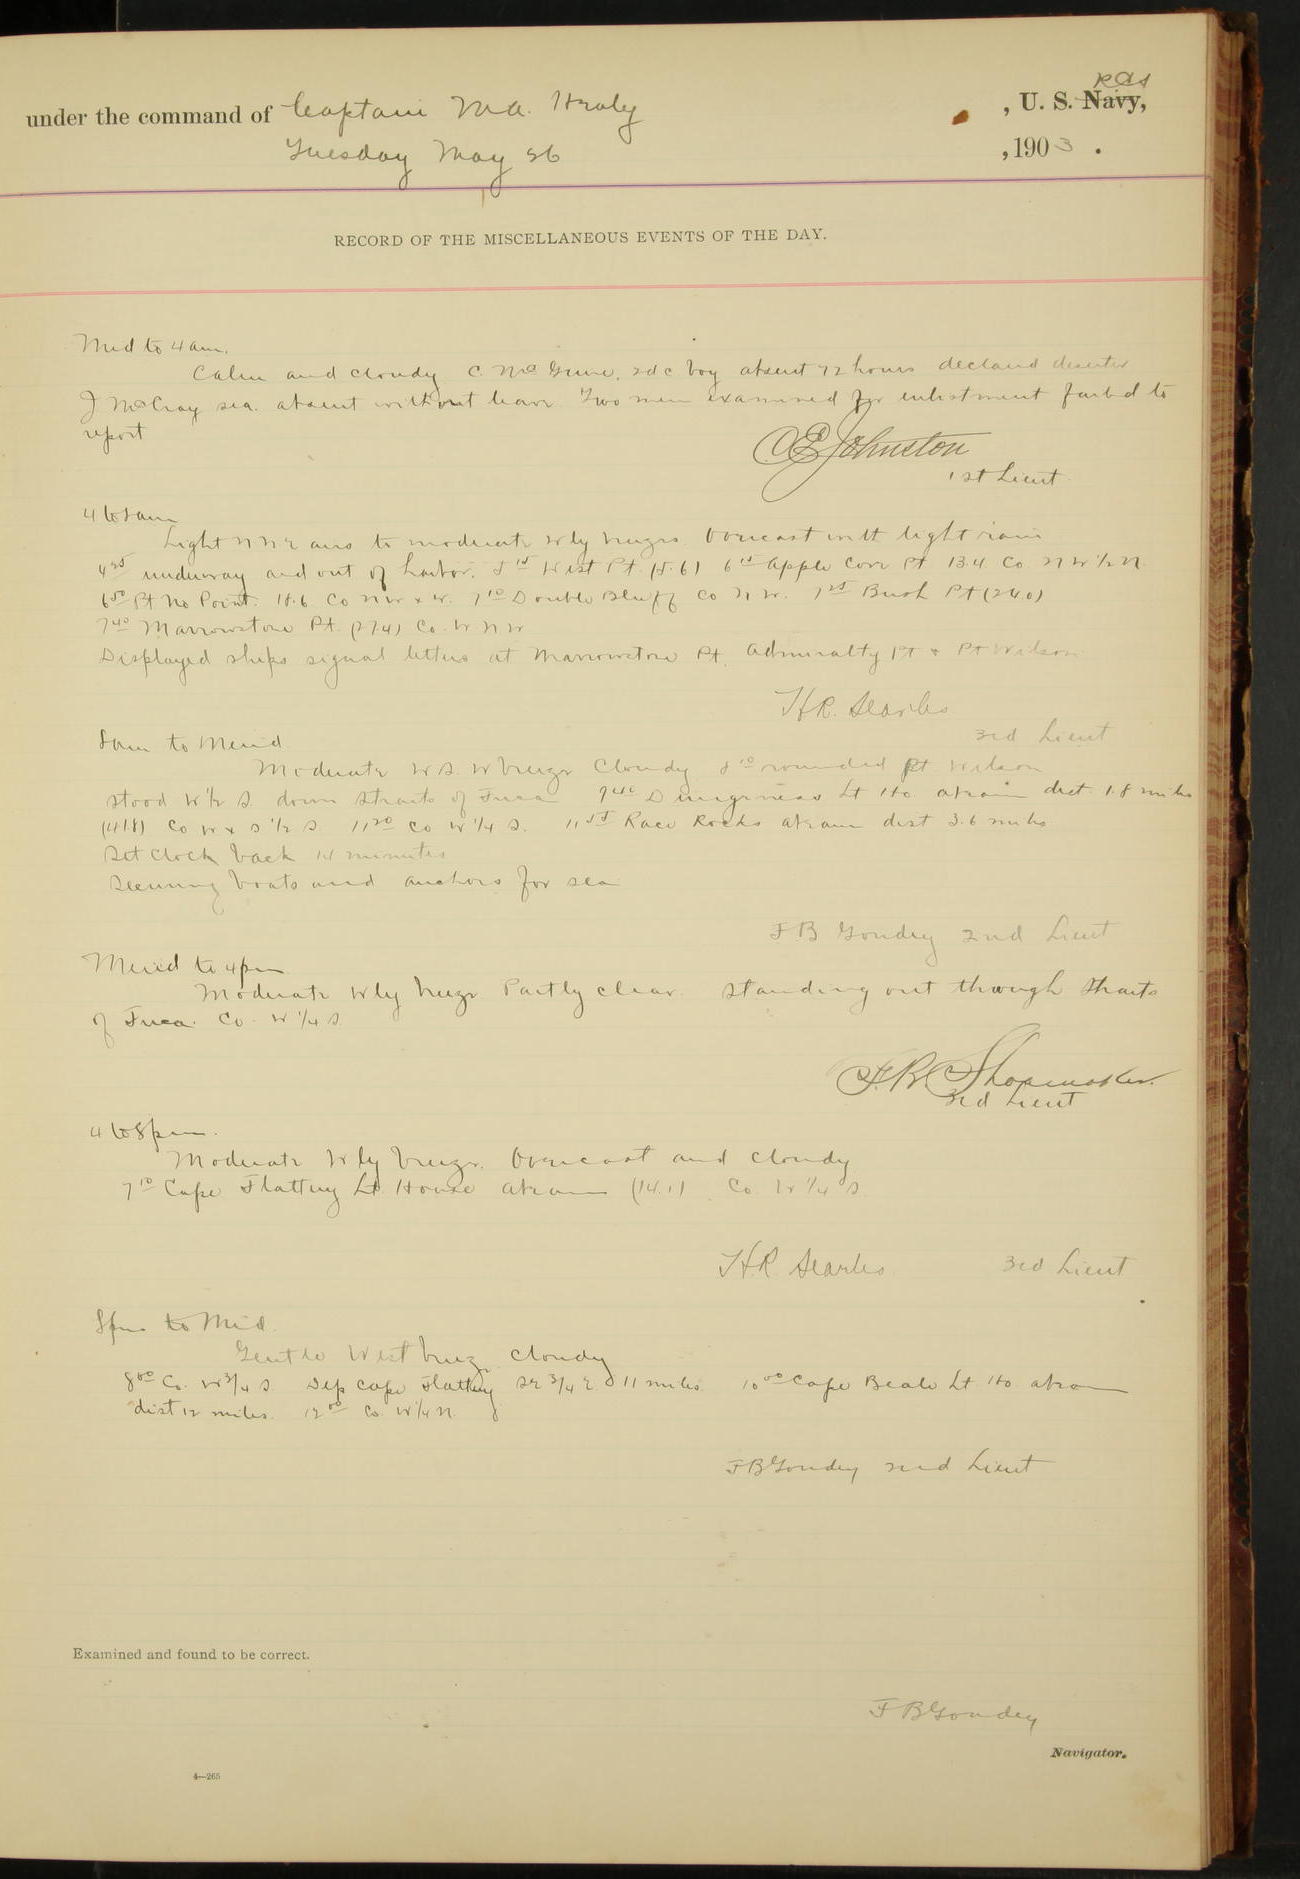 under the command of Captain M.A. Healy , U. S. Navy, RCS
Tuesday May 26 , 1903.
RECORD OF THE MISCELLANEOUS EVENTS OF THE DAY.
Mid to 4 am.
Calm and cloudy C. McGuire, 2d c boy absent 72 hours declared deserter
J McCray sea. absent without leave. Two men examined for enlistment failed to
report
CE Johnston
1st Lieut
4 to 8 am
Light NNE airs to moderate Wly breezes Overcast with light rain
underway and out of harbor. West Pt. (8.6) Apple Cove Pt 13.4 Co NW 1/2 N.
6 50 Pt No Point. 18.6 Co NW x W. 7 10 Double Bluff Co N W. Bush Pt (24.0)
7 40 Marrowstone Pt. (27.4) Co. W N W
Displayed ships signal letters at Marrowstone Pt. Admiralty Pt & Pt Wilson
H.R. Searles
3rd Lieut
8 am to Merid
Moderate W.S.W breeze Cloudy 8 10 rounded Pt Wilson
stood W 1/2 S. down Straits of Fuca 9 40 Dungeness Lt Ho abeam dist 1.8 miles
(41.8) Co W x S 1/2 S 11 20 Co W 1/4 S. Race Rocks abeam dist 3.6 miles
Set Clock back 14 minutes
Securing boats and anchors for sea
F B Goudey 2nd Lieut
Merid to 4 pm
Moderate Wly breeze Partly clear. Standing out through Straits
of Fuca. Co. W 1/4 S
F.B.C Shoemaker.
3rd Lieut
4 to 8 pm.
Moderate Wly breeze. Overcast and cloudy
7 10 Cape Flattery Lt House abeam (14.1) Co. W 1/4 S
H.R. Searles 3rd Lieut
8 pm to Mid
Gentle West breeze cloudy
8 00 Co. W 3/4 S Dep Cape Flattery SE 3/4 E 11 miles 10 00 Cape Beale Lt Ho abeam
dist 12 miles. 12 00 Co. W 1/4 N.
F B Goudey 2nd Lieut
Examined and found to be correct.
F B Goudey
Navigator.
4—265